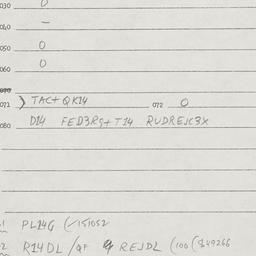 030 0
040 –
050 0
060 0
070
071 ) TAC+QK14 072 0
080 D14 FED3RS+T14 RUDREJC3X
1 PL14G (/151052
2 R14DL /QF & REJDL (100 ($49266